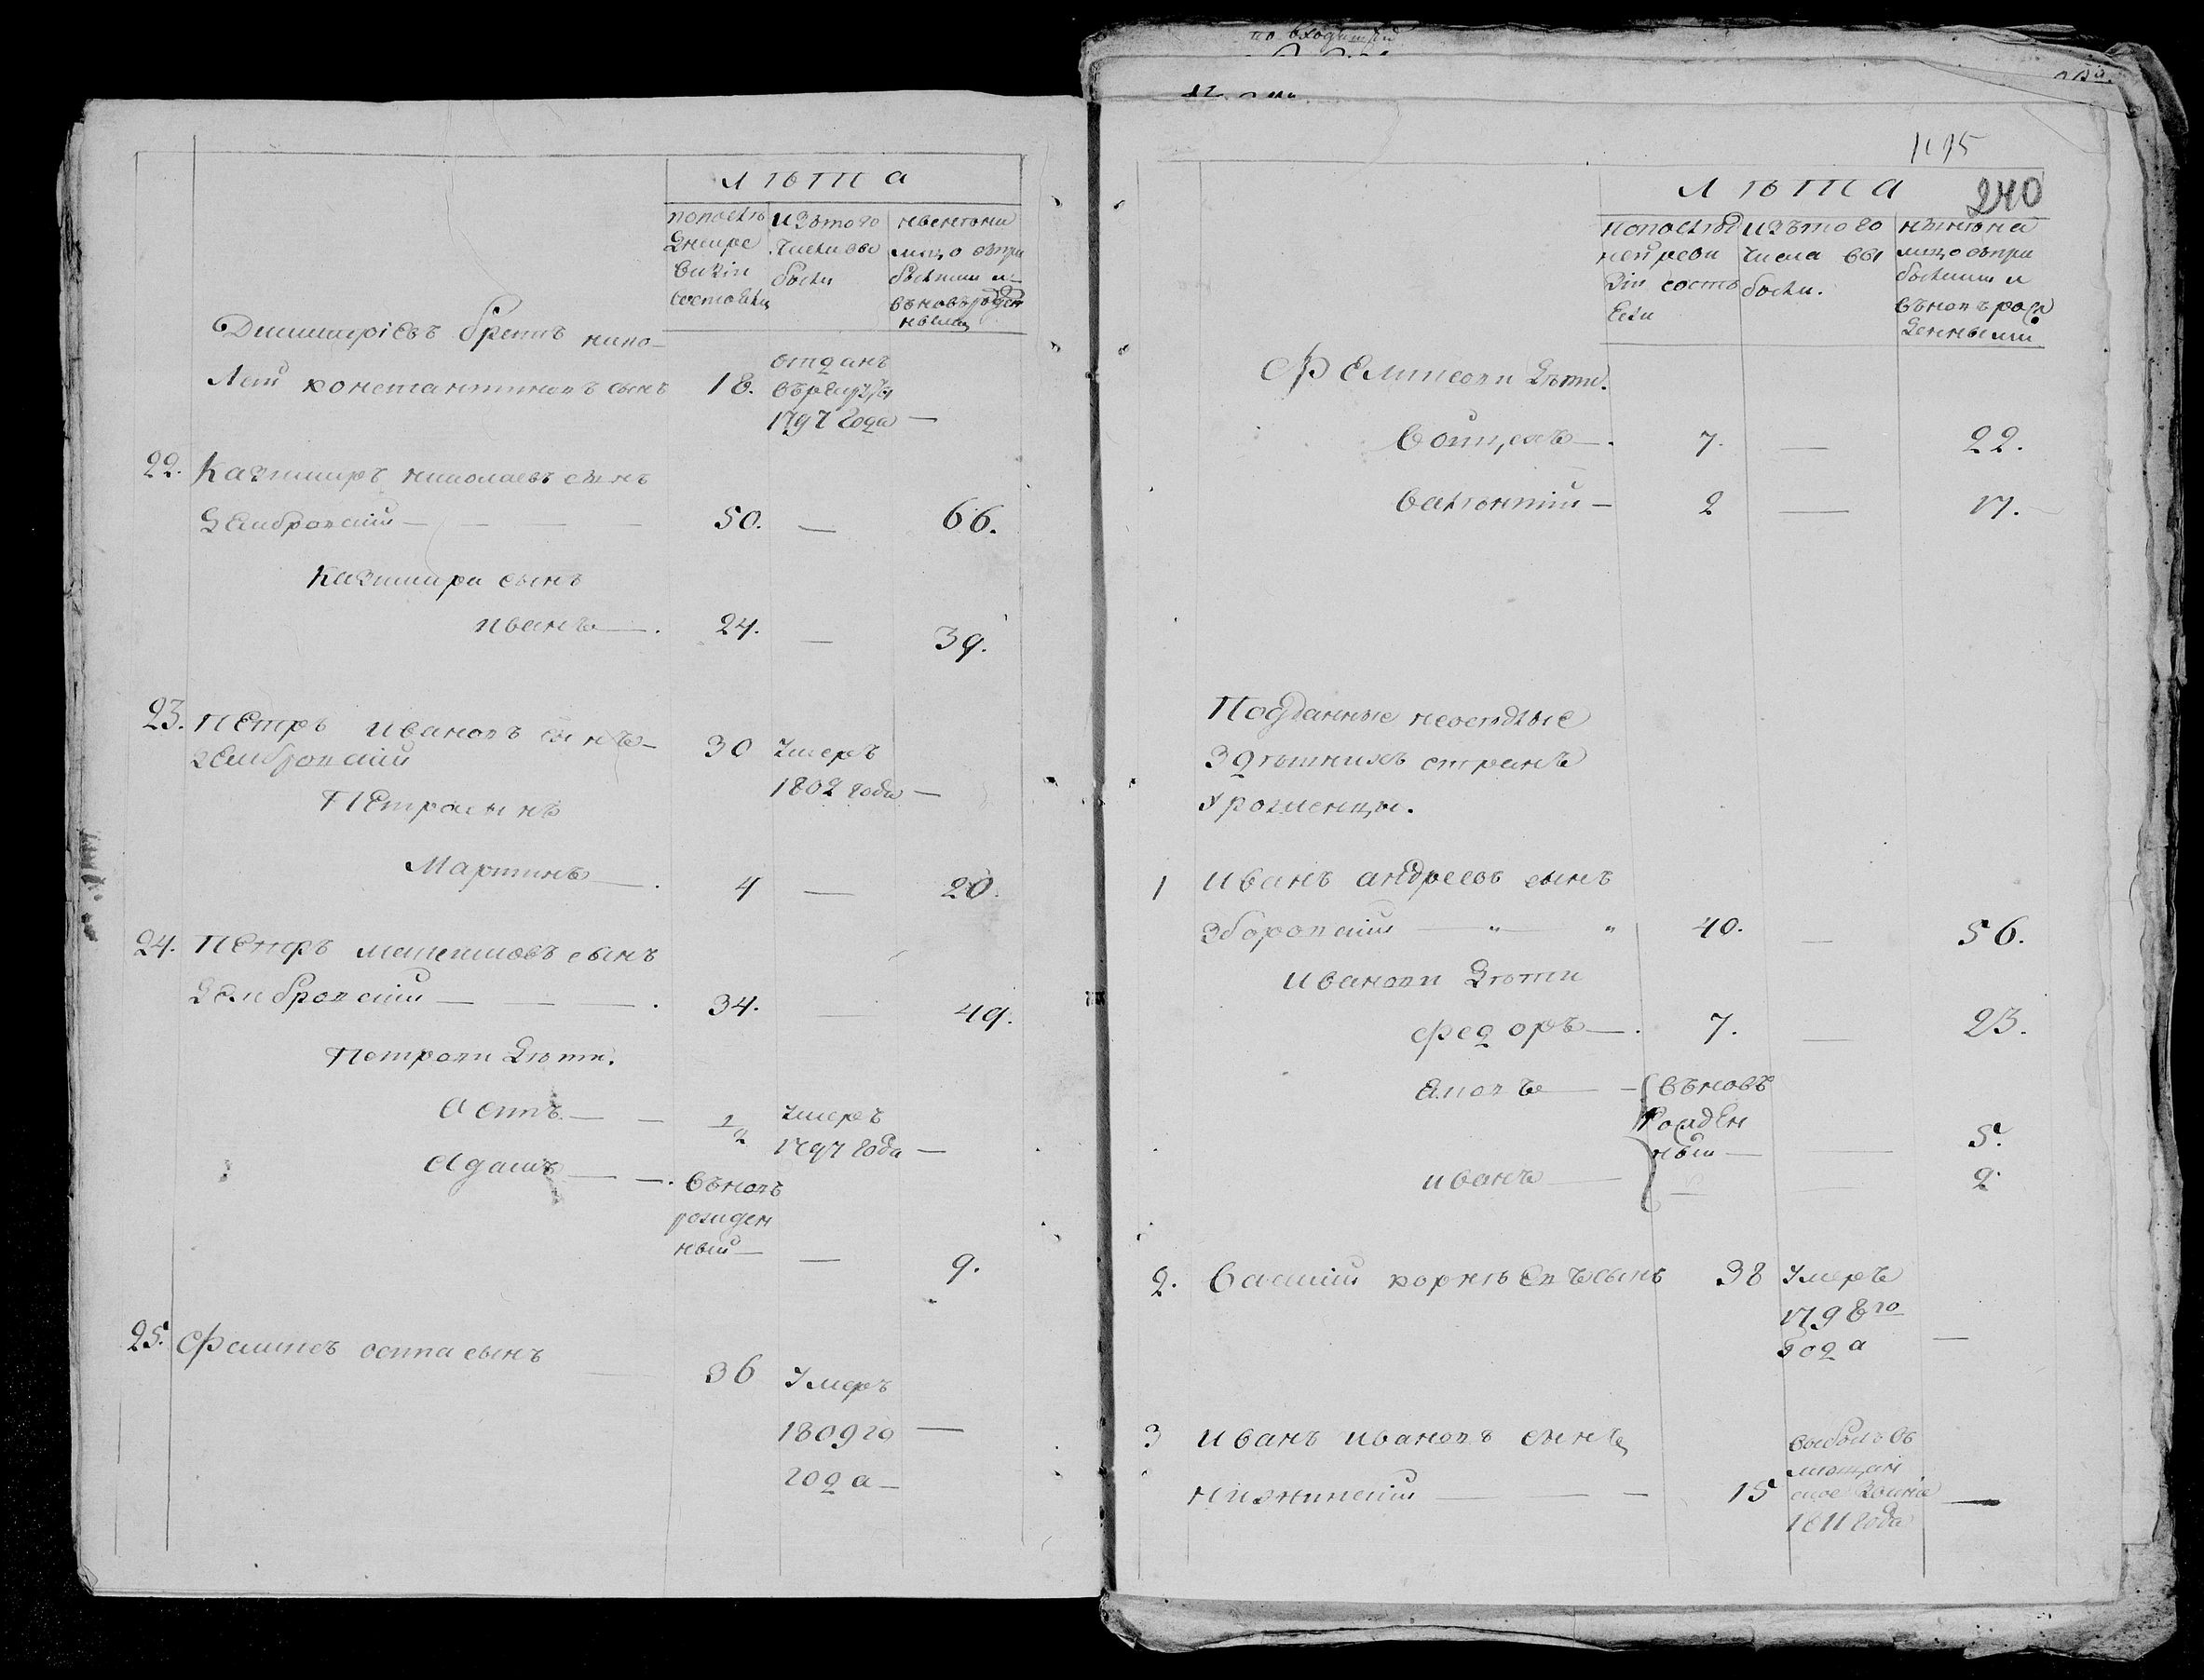 ЛѢТА
попослѣ
днейре
визіи
состояли
изътого
числа вы
были
нынѣна
лицо съпри
былыми и
въновърожден
ными
Дмитріевъ братъ нико-
лай константиновъ сынъ 18. отданъ
върекруты
1797 года —
22. Казимиръ николаевъ сынъ
Зембровскій — 50. — 66.
Казимира сынъ
иванъ — 24. — 39.
23. Петръ ивановъ сынъ —
Зембровскій 30 Умеръ
1802 года —
Петра сынъ
Мартинъ — 4 — 20.
24. Петръ сынъ
Зембровскій — 34. — 49.
Петровы дѣти.
— 1/2 Умеръ
1797 года —
Адамъ — въновъ
рожден
ный — — 9.
25. сынъ — 36 Умеръ
1809го —
года —
1195
ЛѢТА
240
попослѣд
ней реви
зіи состо
яли
изътого
числа вы
были.
нынѣна
лицо съпри
былыми и
въновърож
денными
дѣти.
Войцехъ — 7. — 22.
Валентій — 2 — 17.
Подданные неосѣдлые
Здѣшнихъ странъ
Уроженцы.
1 Иванъ андреевъ сынъ
Зборовскій — " " 40. — 56.
Ивановы дѣти
федоръ — 7. — 23.
— въновъ
рожден
ный — — 5.
иванъ — — 2.
2. Василій корнѣевъ сынъ 38 Умеръ
1798го
года —
3 Иванъ ивановъ сынъ
— 15 выбылъ въ
мѣщан
ское званіе —
1811 года